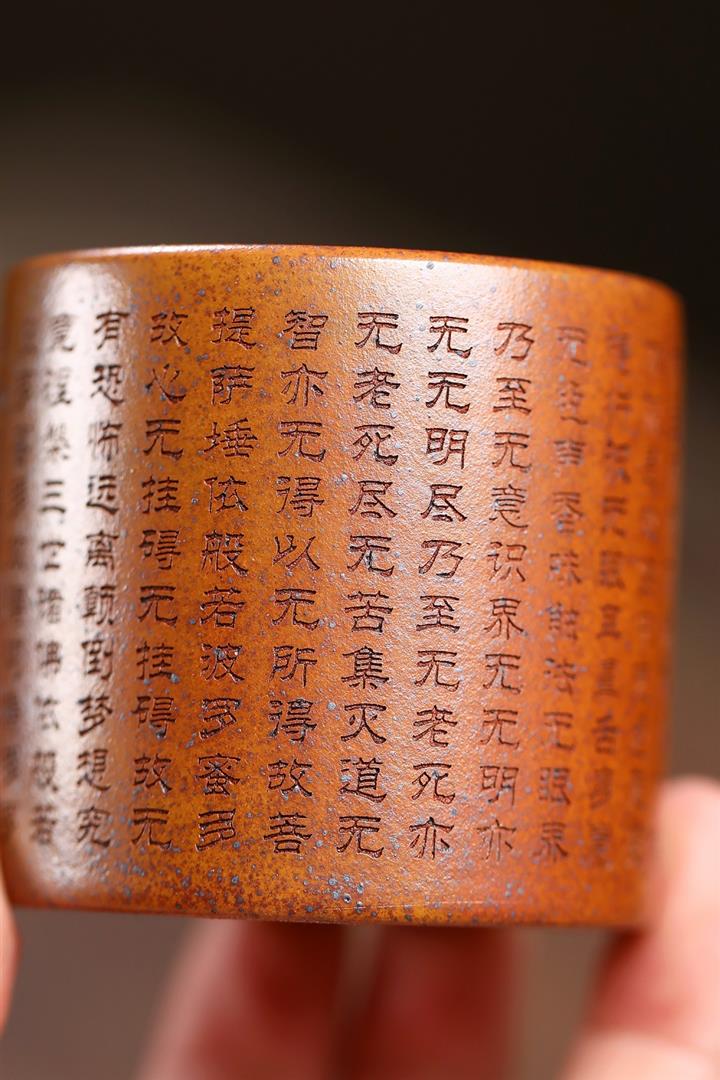 想行识无眼耳鼻舌身意
无色声香味触法无眼界
乃至无意识界无无明亦
无无明尽乃至无老死亦
无老死尽无苦集灭道无
智亦无得以无所得故菩
提萨埵依般若波罗蜜多
故心无挂碍无挂碍故无
有恐怖远离颠倒梦想究
竟涅槃三世诸佛依般若